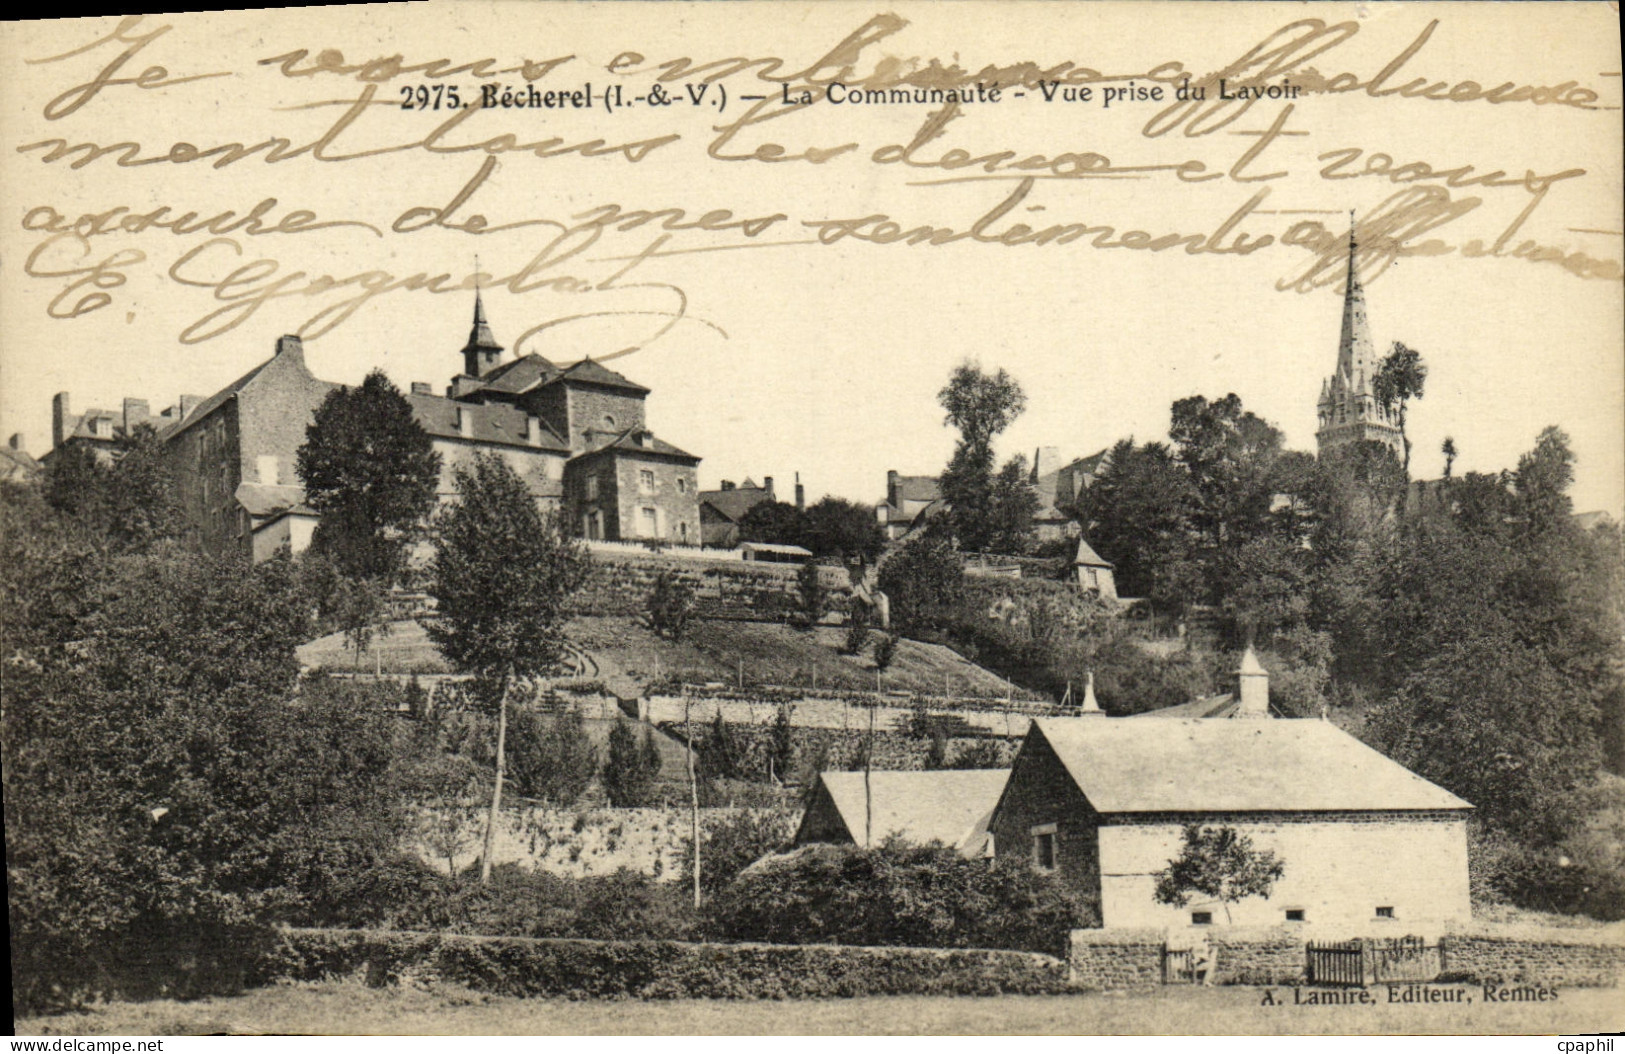 Je vous embrasse affectueuse
2975. Bécherel (I.-&-V.) — La Communauté - Vue prise du Lavoir
ment tous les deux et vous
assure de mes sentiments affectueux
E.
A. Lamiré, Editeur, Rennes
www.delcampe.net
cpaphil